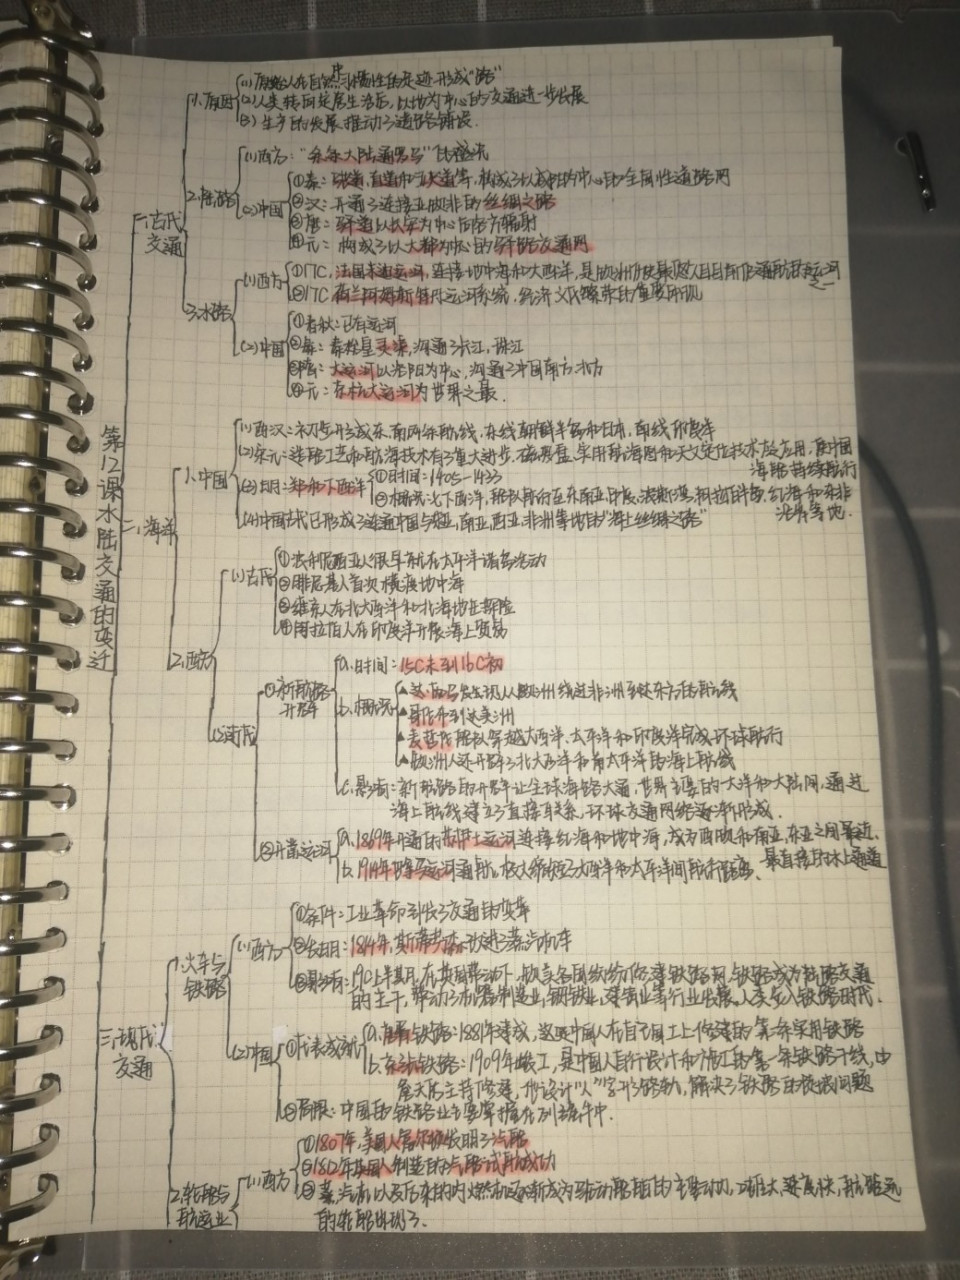 第12课水陆交通的变迁
一、古代交通
1.原因
(1)原始人在自然中习惯性的足迹形成"路"
(2)人类转向定居生活后，以地为中心的交通进一步发展
(3)生产的发展推动了道路铺设.
2.陆路
(1)西方："条条大陆通罗马"
(2)中国
①秦：驰道、直道和五尺道等，构成了以咸阳为中心的全国性道路网
②汉：开通了连接亚欧非的丝绸之路
③唐：驿道以长安为中心向各方辐射
④元：构成了以大都为中心的驿路交通网
3.水路
(1)西方
①17C，法国米迪运河，连接地中海和大西洋，是欧洲历史最悠久且目前仍通航的运河之一
②17C 荷兰阿姆斯特丹运河系统，经济文化繁荣的重要
(2)中国
①春秋：已有运河
②秦：秦楚皇灵渠，沟通了长江、珠江
③隋：大运河以洛阳为中心，沟通了中国南方北方
④元：京杭大运河为世界之最.
二、海洋
1.中国
(1)西汉：初步形成东、南两条航线，东线朝鲜半岛和日本，南线印度洋
(2)宋元：造船工艺和航海技术有了重大进步，磁罗盘、采用航海图和天文定位技术应用，使中国海船持续航行
(3)明：郑和下西洋
①时间：1405-1433
②概况：七下西洋，船队所向至东南亚、印度、波斯湾、阿拉伯半岛、红海和东非沿岸等地.
(4)中国古代已形成了连通中国与东亚，南亚，西亚，非洲等地的"海上丝绸之路"
2.西方
(1)古代
①波利尼西亚人很早就在太平洋诸岛活动
②腓尼基人首次横渡地中海
③维京人在北大西洋和北海地区探险
④阿拉伯人在印度洋开展海上贸易
(2)近代
①新航路开辟
a.时间：15C末到16C初
b.概况
▲达·伽马发现从欧洲绕过非洲到达东方的航线
▲哥伦布到达美洲
▲麦哲伦船队穿越大西洋、太平洋和印度洋完成环球航行
▲欧洲人还开辟了北大西洋和南太平洋的海上航线
c.影响：新航路的开辟让全球海路大通，世界主要的大洋和大陆间，通过海上航线建立了直接联系，环球交通网络逐渐形成.
②开凿运河
a.1869年开通的苏伊士运河连接红海和地中海，成为西欧和南亚、东亚之间最近、最直接的水上通道
b.1914年巴拿马运河通航，极大缩短了大西洋和太平洋间航行距离.
三、现代交通
1.火车与铁路
(1)西方
①条件：工业革命引发了交通的变革
②发明：1814年，斯蒂芬森改进了蒸汽机车
③影响：19C上半期，在英国带动下，欧美各国纷纷修建铁路网，铁路成为陆路交通的主干，带动了机器制造业，钢铁业，建筑业等行业发展，人类步入铁路时代.
(2)中国
①代表成就
a.唐胥铁路：1881年建成，这是中国人在自己国土上修建的第一条实用铁路
b.京张铁路：1909年竣工，是中国人自行设计和施工的第一条铁路干线，由詹天佑主持修建，他设计"人"字形路轨，解决了铁路的坡度问题
②局限：中国的铁路业主要掌握在列强手中.
2.轮船与航运业
(1)西方
①1807年，美国人富尔顿发明了汽船
②1812年英国人制造的汽船试航成功
③蒸汽机以及后来的内燃机逐渐成为驱动船舶的主要动力，吨位大，速度快，航路远的轮船出现了.